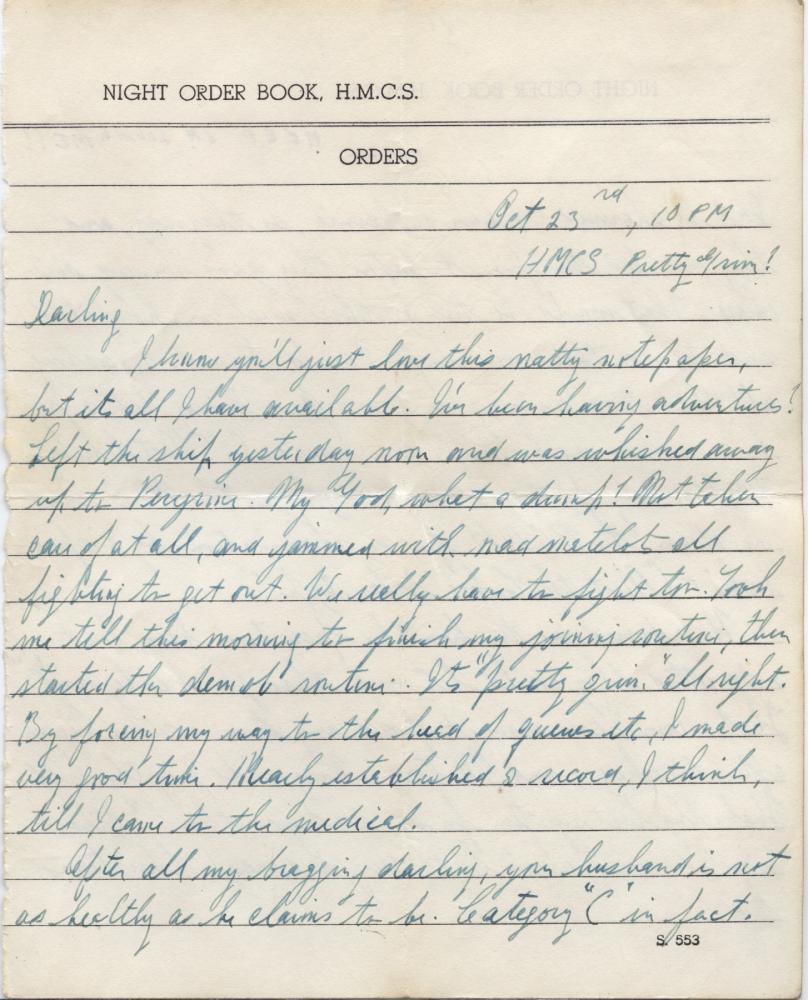 NIGHT ORDER BOOK, H.M.C.S.
ORDERS
Oct 23rd, 10 PM
HMCS Pretty Grim!
Darling
I know you'll just love this natty notepaper,
but its all I have available. I've been having adventures!
Left the ship yesterday noon and was whisked away
up to Peregrine. My God, what a dump! Not taken
care of at all, and jammed with mad matelots all
fighting to get out. We really have to fight too. Took
me till this morning to finish my joining routine, then
started the demob routine. Its "pretty grim" all right.
By forcing my way to the head of queues etc, I made
very good time. Nearly established a record, I think,
till I came to the medical.
After all my bragging darling, your husband is not
as healthy as he claims to be. Category "C" in fact.
S. 553